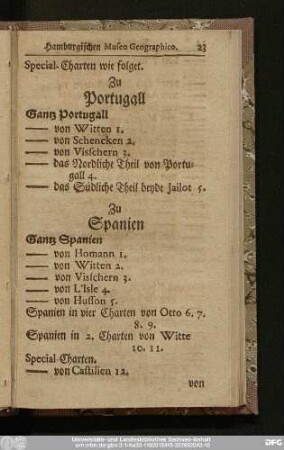 Hamburgischen Museo Geographico. 23
Special-Charten wie folget.
Zu
Portugall
Gantz Portugall
—— von Witten 1.
—— von Schencken 2.
—— von Visschern 3.
—— das Nordliche Theil von Portu-
gall 4.
—— das Südliche Theil beyde Jailot 5.
Zu
Spanien
Gantz Spanien
—— von Homann 1.
—— von Witten 2.
—— von Visschern 3.
—— von L'Isle 4.
—— von Husson 5.
Spanien in vier Charten von Otto 6. 7.
8. 9.
Spanien in 2. Charten von Witte
10. 11.
Special-Charten.
—— von Castilien 12.
von
Universitäts- und Landesbibliothek Sachsen-Anhalt
DFG